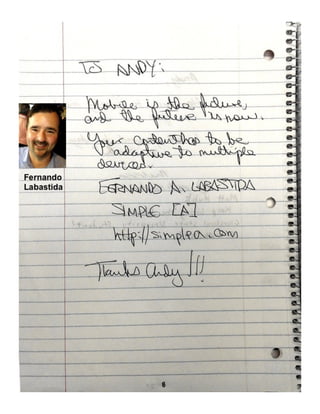 TO ANDY:
Mobile is the future,
and the future is now.
Your content has to be
adaptive to multiple
devices.
Fernando
Labastida
FERNANDO A. LABASTIDA
SIMPLE [A]
http://simplea.com
Thanks Andy!!!
6